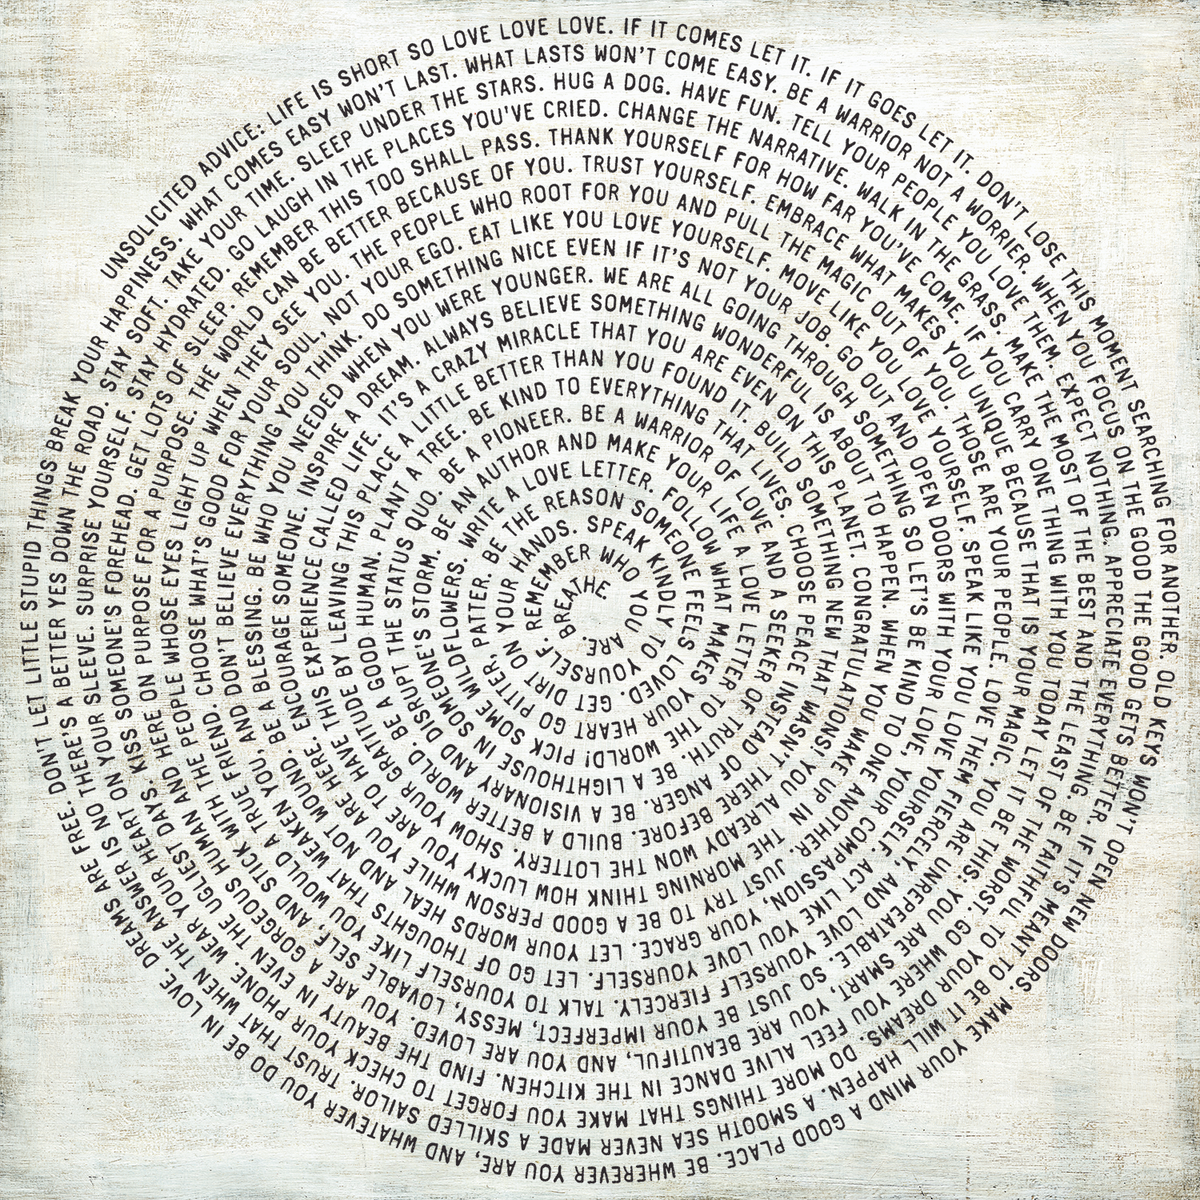 UNSOLICITED ADVICE: LIFE IS SHORT SO LOVE LOVE LOVE. IF IT COMES LET IT. IF IT GOES LET IT. DON'T LOSE THIS MOMENT SEARCHING FOR ANOTHER. OLD KEYS WON'T OPEN NEW DOORS. MAKE YOUR MIND A GOOD PLACE. BE WHEREVER YOU ARE, AND WHATEVER YOU DO BE IN LOVE. DREAMS ARE FREE. DON'T LET LITTLE STUPID THINGS BREAK YOUR HAPPINESS. WHAT COMES EASY WON'T LAST. WHAT LASTS WON'T COME EASY. BE A WARRIOR NOT A WORRIER. WHEN YOU FOCUS ON THE GOOD THE GOOD GETS BETTER. IF IT'S MEANT TO BE IT WILL HAPPEN. A SMOOTH SEA NEVER MADE A SKILLED SAILOR. TRUST THAT WHEN THE ANSWER IS NO THERE'S A BETTER YES DOWN THE ROAD. STAY SOFT. TAKE YOUR TIME. SLEEP UNDER THE STARS. HUG A DOG. HAVE FUN. TELL YOUR PEOPLE YOU LOVE THEM. EXPECT NOTHING, APPRECIATE EVERYTHING. BE FAITHFUL TO YOUR DREAMS. DO MORE THINGS THAT MAKE YOU FORGET TO CHECK YOUR PHONE. WEAR YOUR HEART ON YOUR SLEEVE. SURPRISE YOURSELF. STAY HYDRATED. GO LAUGH IN THE PLACES YOU'VE CRIED. CHANGE THE NARRATIVE. WALK IN THE GRASS. MAKE THE MOST OF THE BEST AND THE LEAST OF THE WORST. GO WHERE YOU FEEL ALIVE DANCE IN THE KITCHEN. FIND THE BEAUTY IN EVEN THE UGLIEST DAYS. KISS SOMEONE'S FOREHEAD. GET LOTS OF SLEEP. REMEMBER THIS TOO SHALL PASS. THANK YOURSELF FOR HOW FAR YOU'VE COME. IF YOU CARRY ONE THING WITH YOU TODAY LET IT BE THIS: YOU ARE SMART, YOU ARE BEAUTIFUL, AND YOU ARE LOVED. YOU ARE A GORGEOUS HUMAN AND HERE ON PURPOSE FOR A PURPOSE. THE WORLD CAN BE BETTER BECAUSE OF YOU. TRUST YOURSELF. EMBRACE WHAT MAKES YOU UNIQUE BECAUSE THAT IS YOUR MAGIC. YOU ARE UNREPEATABLE. SO JUST BE YOUR IMPERFECT, MESSY, LOVABLE SELF, AND STICK WITH THE PEOPLE WHOSE EYES LIGHT UP WHEN THEY SEE YOU. THE PEOPLE WHO ROOT FOR YOU AND PULL THE MAGIC OUT OF YOU. THOSE ARE YOUR PEOPLE. LOVE THEM FIERCELY, AND LOVE YOURSELF FIERCELY. TALK TO YOURSELF LIKE YOU WOULD A TRUE FRIEND. CHOOSE WHAT'S GOOD FOR YOUR SOUL, NOT YOUR EGO. EAT LIKE YOU LOVE YOURSELF. MOVE LIKE YOU LOVE YOURSELF. SPEAK LIKE YOU LOVE YOURSELF. ACT LIKE YOU LOVE YOURSELF. LET GO OF THOUGHTS THAT WEAKEN YOU, AND DON'T BELIEVE EVERYTHING YOU THINK. DO SOMETHING NICE EVEN IF IT'S NOT YOUR JOB. GO OUT AND OPEN DOORS WITH YOUR LOVE, YOUR COMPASSION, YOUR GRACE. LET YOUR WORDS HEAL AND NOT WOUND. BE A BLESSING. BE WHO YOU NEEDED WHEN YOU WERE YOUNGER. WE ARE ALL GOING THROUGH SOMETHING SO LET'S BE KIND TO ONE ANOTHER. JUST TRY TO BE A GOOD PERSON WHILE YOU ARE HERE. ENCOURAGE SOMEONE. INSPIRE A DREAM. ALWAYS BELIEVE SOMETHING WONDERFUL IS ABOUT TO HAPPEN. WHEN YOU WAKE UP IN THE MORNING THINK HOW LUCKY YOU ARE TO HAVE THIS EXPERIENCE CALLED LIFE. IT'S A CRAZY MIRACLE THAT YOU ARE EVEN ON THIS PLANET. CONGRATULATIONS! YOU ALREADY WON THE LOTTERY. SHOW YOUR GRATITUDE BY LEAVING THIS PLACE A LITTLE BETTER THAN YOU FOUND IT. BUILD SOMETHING NEW THAT WASN'T THERE BEFORE. BUILD A BETTER WORLD. BE A GOOD HUMAN. PLANT A TREE. BE KIND TO EVERYTHING THAT LIVES. CHOOSE PEACE INSTEAD OF ANGER. BE A VISIONARY AND DISRUPT THE STATUS QUO. BE A PIONEER. BE A WARRIOR OF LOVE AND A SEEKER OF TRUTH. BE A LIGHTHOUSE IN SOMEONE'S STORM. BE AN AUTHOR AND MAKE YOUR LIFE A LOVE LETTER TO THE WORLD! PICK SOME WILDFLOWERS. WRITE A LOVE LETTER. FOLLOW WHAT MAKES YOUR HEART GO PITTER, PATTER. BE THE REASON SOMEONE FEELS LOVED. GET DIRT ON YOUR HANDS. SPEAK KINDLY TO YOURSELF. REMEMBER WHO YOU ARE. BREATHE